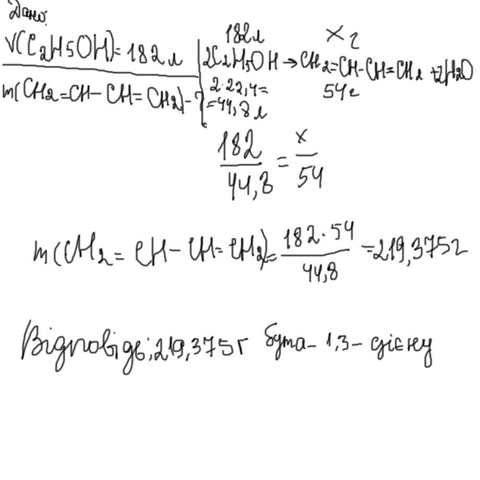 Дано:
V(C2H5OH)=182л
m(CH2=CH-CH=CH2)-?
182л x г
2C2H5OH → CH2=CH-CH=CH2 + 2H2O
2·22,4= 54г
=44,8л
182/44,8 = x/54
m(CH2=CH-CH=CH2)= 182·54/44,8 =219,375г
Відповідь: 219,375г бута-1,3-дієну